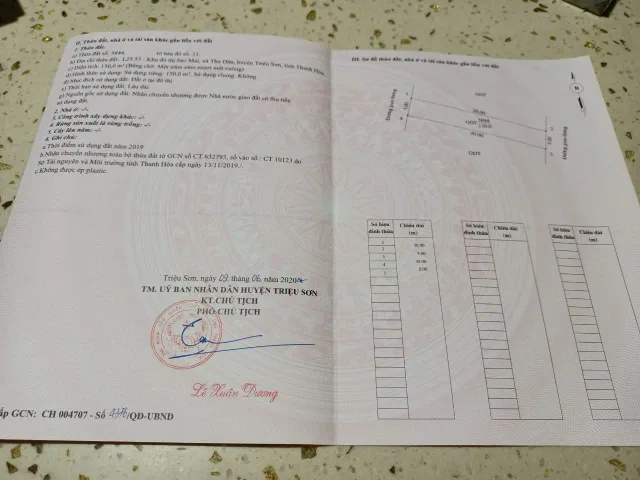 II. Thửa đất, nhà ở và tài sản khác gắn liền với đất
1. Thửa đất:
a) Thửa đất số: 5846, tờ bản đồ số: 11,
b) Địa chỉ thửa đất: xã Thọ Dân, huyện Triệu Sơn, tỉnh Thanh Hóa
c) Diện tích: 150,0 m² (Bằng chữ: Một trăm năm mươi mét vuông)
d) Hình thức sử dụng: Sử dụng riêng: 150,0 m²; Sử dụng chung: Không
đ) Mục đích sử dụng đất: Đất ở tại đô thị
e) Thời hạn sử dụng đất: Lâu dài
g) Nguồn gốc sử dụng đất: Nhận chuyển nhượng được Nhà nước giao đất có thu tiền
sử dụng đất.
2. Nhà ở: -/-
3. Công trình xây dựng khác: -/-
4. Rừng sản xuất là rừng trồng: -/-
5. Cây lâu năm: -/-
6. Ghi chú:
a.Thời điểm sử dụng đất năm 2019
b.Nhận chuyển nhượng toàn bộ thửa đất từ GCN số CT 632793, số vào sổ : CT 10123 do
Sở Tài nguyên và Môi trường tỉnh Thanh Hóa cấp ngày 13/11/2019./.
c.Không được ép plastic.
Triệu Sơn, ngày 09 tháng 06 năm 2020
TM. UỶ BAN NHÂN DÂN HUYỆN TRIỆU SƠN
KT.CHỦ TỊCH
PHÓ CHỦ TỊCH
Lê Xuân Dương
ấp GCN: CH 004707 - Số /QĐ-UBND
III. Sơ đồ thửa đất, nhà ở và tài sản khác gắn liền với đất
Đường giao thông
5.00
30.00
5846
30.00
5.00
Đường giao thông
Số hiệu đỉnh thửa Chiều dài (m)
30.00
5.00
30.00
5.00
Số hiệu đỉnh thửa Chiều dài (m)
Số hiệu đỉnh thửa Chiều dài (m)